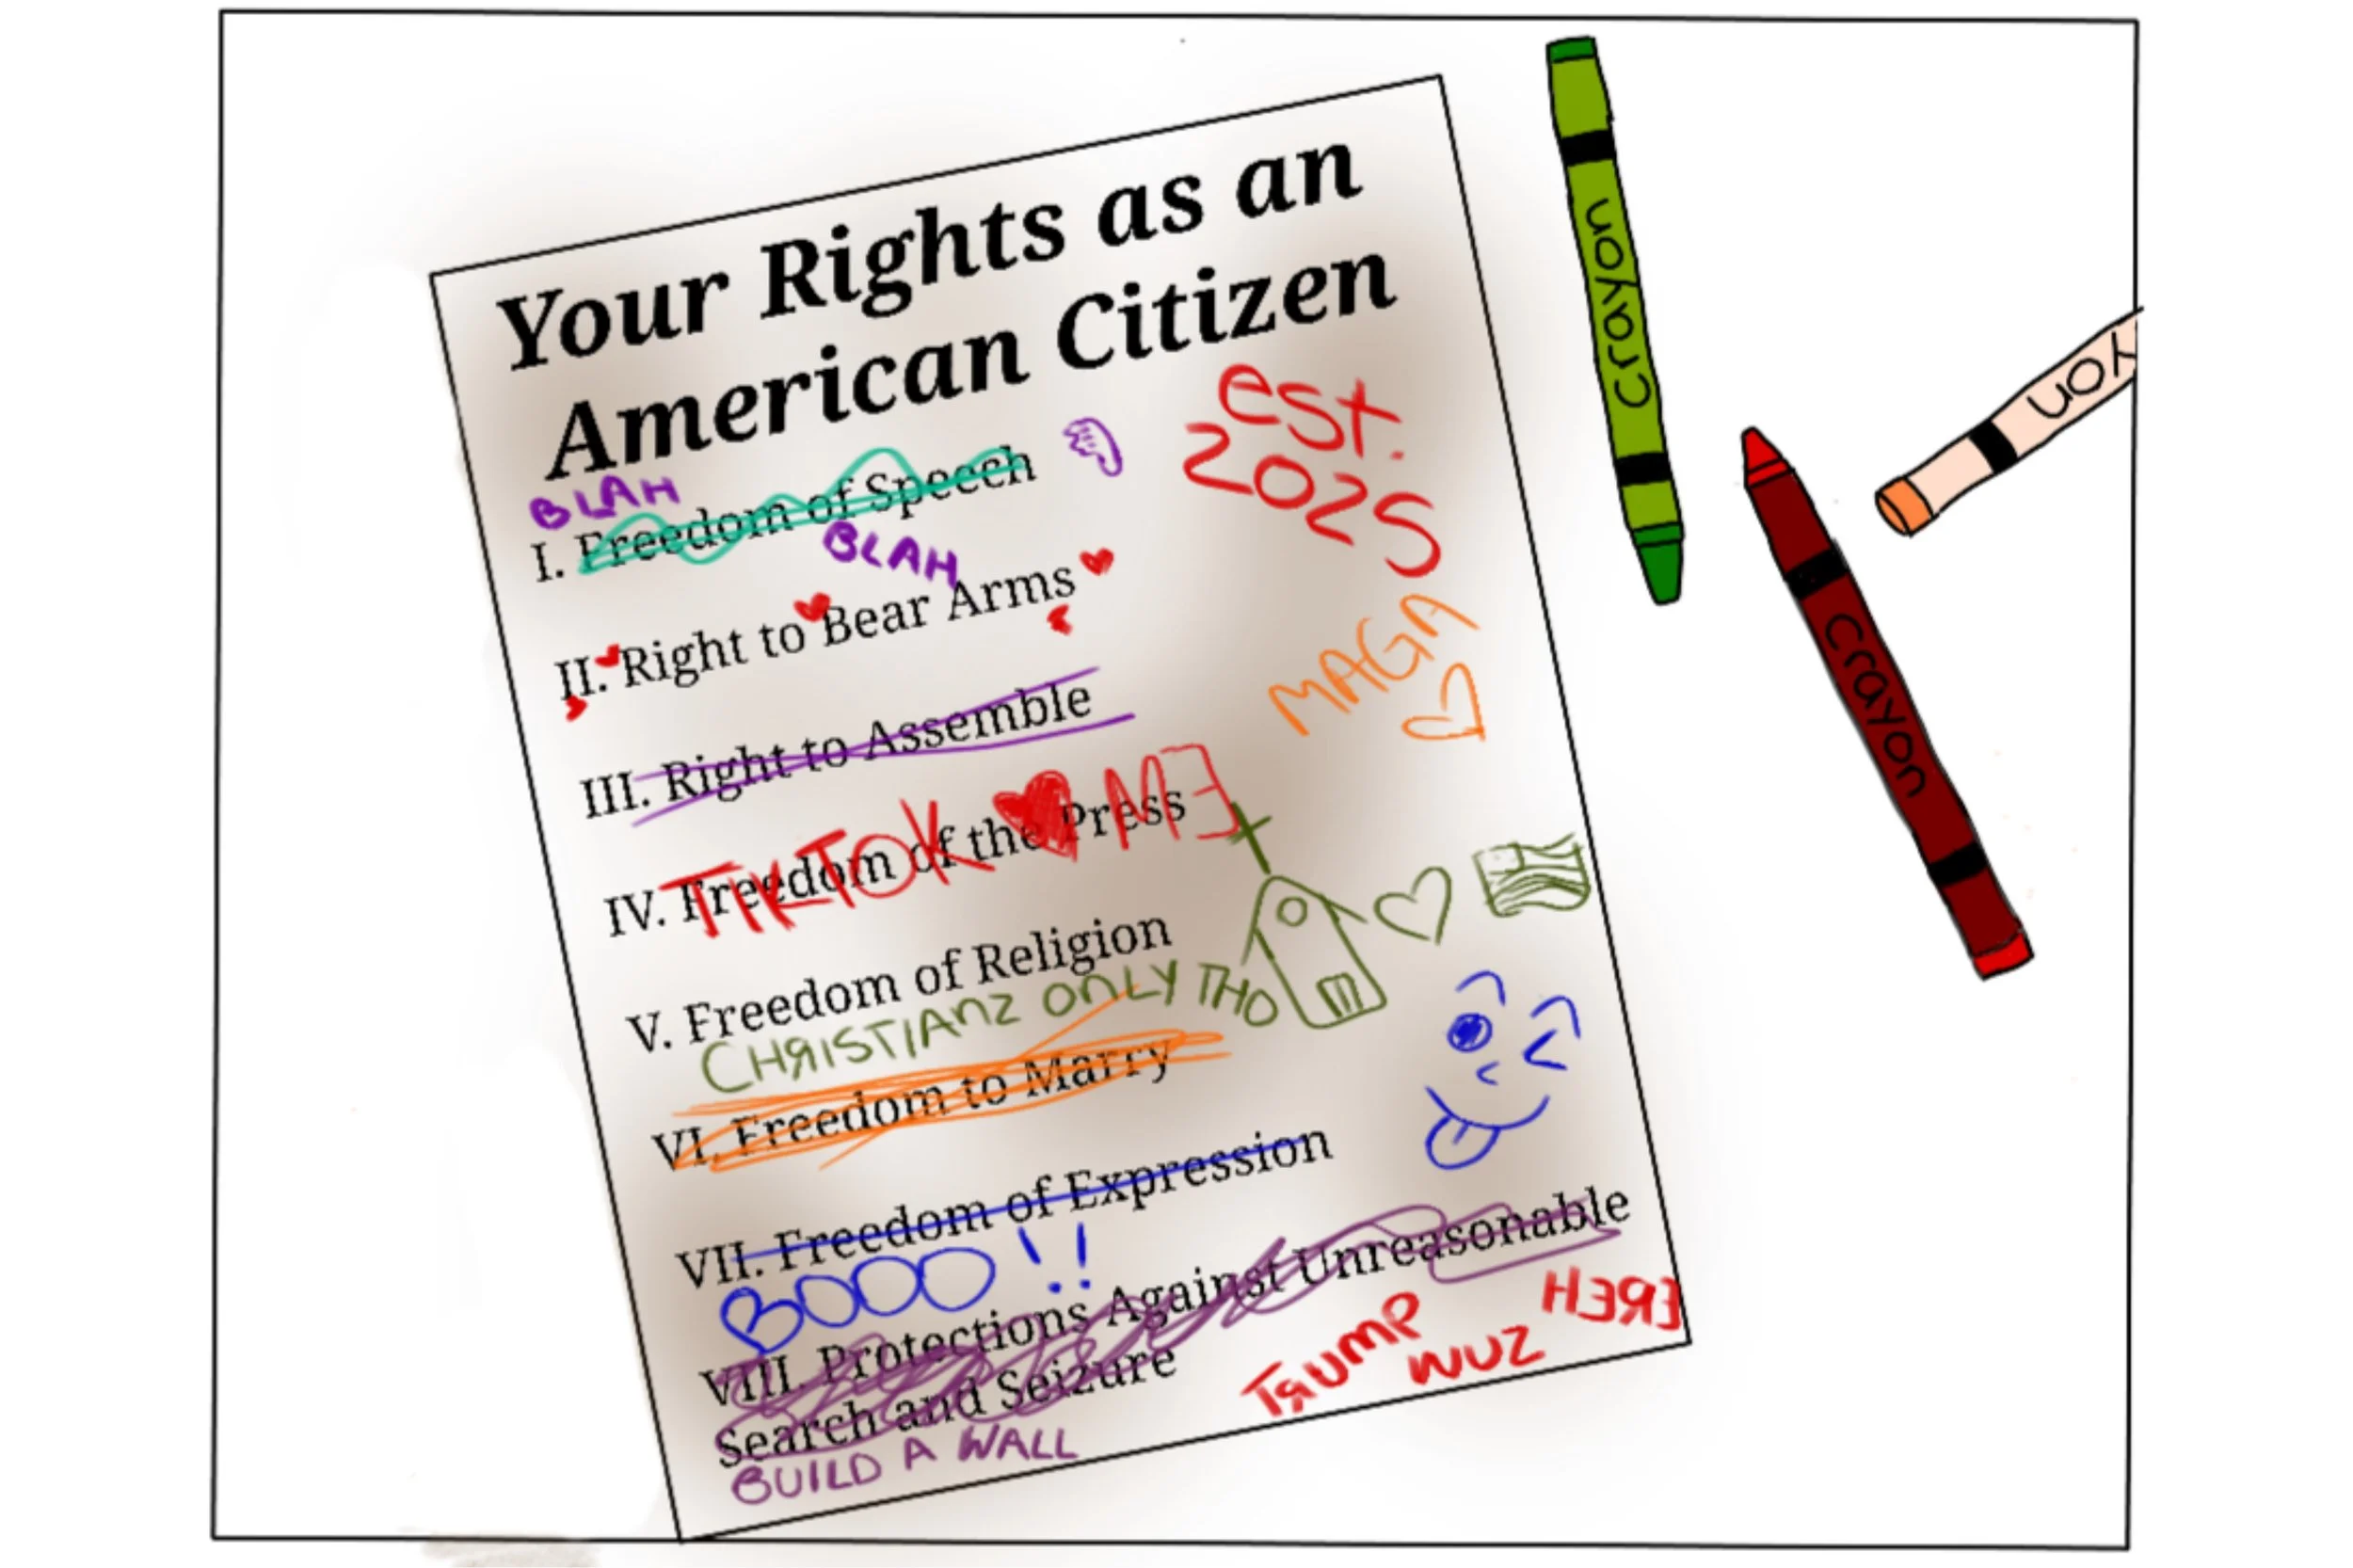 Your Rights as an
American Citizen
est.
2025
BLAH
I. Freedom of Speech
BLAH
II. Right to Bear Arms
MAGA
III. Right to Assemble
TIKTOK ME
IV. Freedom of the Press
V. Freedom of Religion
CHRISTIANZ ONLY THO
VI. Freedom to Marry
VII. Freedom of Expression
BOOO!!
VIII. Protections Against Unreasonable
Search and Seizure
BUILD A WALL
TRUMP
WUZ
HERE
crayon
crayon
yon